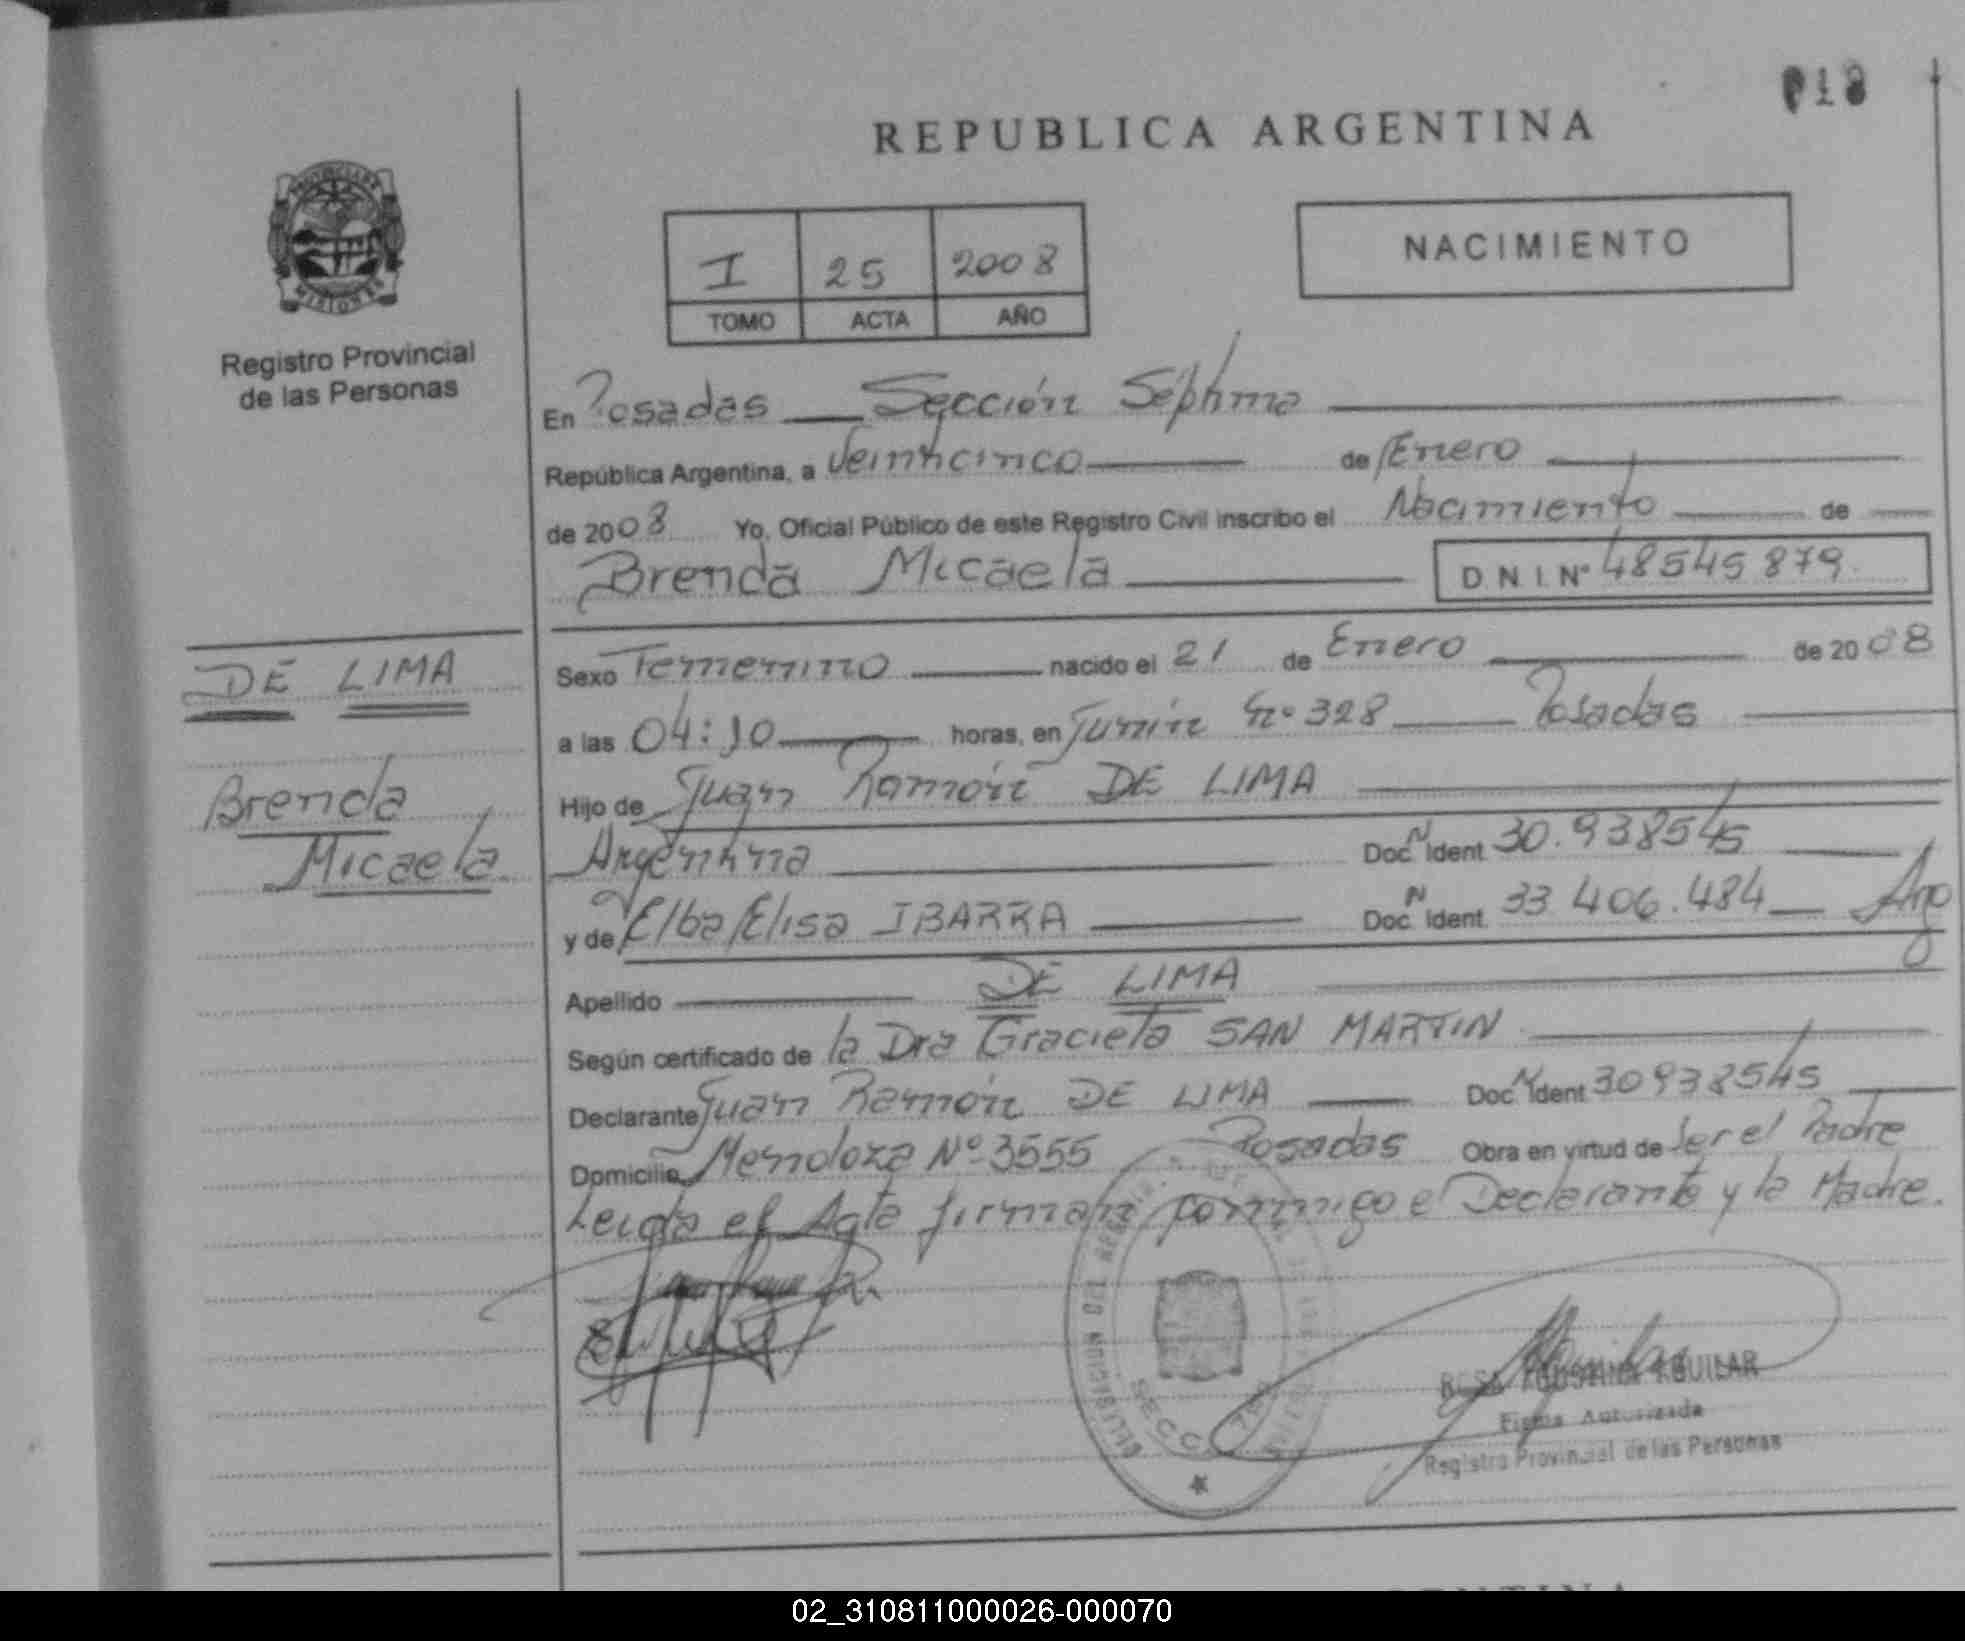 018
REPUBLICA ARGENTINA
MISIONES
Registro Provincial
de las Personas
I 25 2008
TOMO ACTA AÑO
NACIMIENTO
En Posadas Sección Séptima
República Argentina, a Veinticinco de Enero
de 2008 Yo, Oficial Público de este Registro Civil inscribo el Nacimiento de
Brenda Micaela D.N.I. Nº 48545879
DE LIMA
Brenda
Micaela
Sexo Femenino nacido el 21 de Enero de 2008
a las 04:10 horas, en Junín Nº 328 Posadas
Hijo de Juan Ramón DE LIMA
Argentina Doc. N Ident 30.938545
y de Elba Elisa IBARRA Doc. N Ident. 33 406.484 Arg
Apellido DE LIMA
Según certificado de la Dra Graciela SAN MARTIN
Declarante Juan Ramón DE LIMA Doc. N Ident 30938545
Domicilio Mendoza Nº 3555 Posadas Obra en virtud de ser el Padre
Leida el Acta firman conmigo el Declarante y la Madre.
SECC. 7ma
ROSA AGUSTINA AGUILAR
Firma Autorizada
Registro Provincial de las Personas
02_310811000026-000070